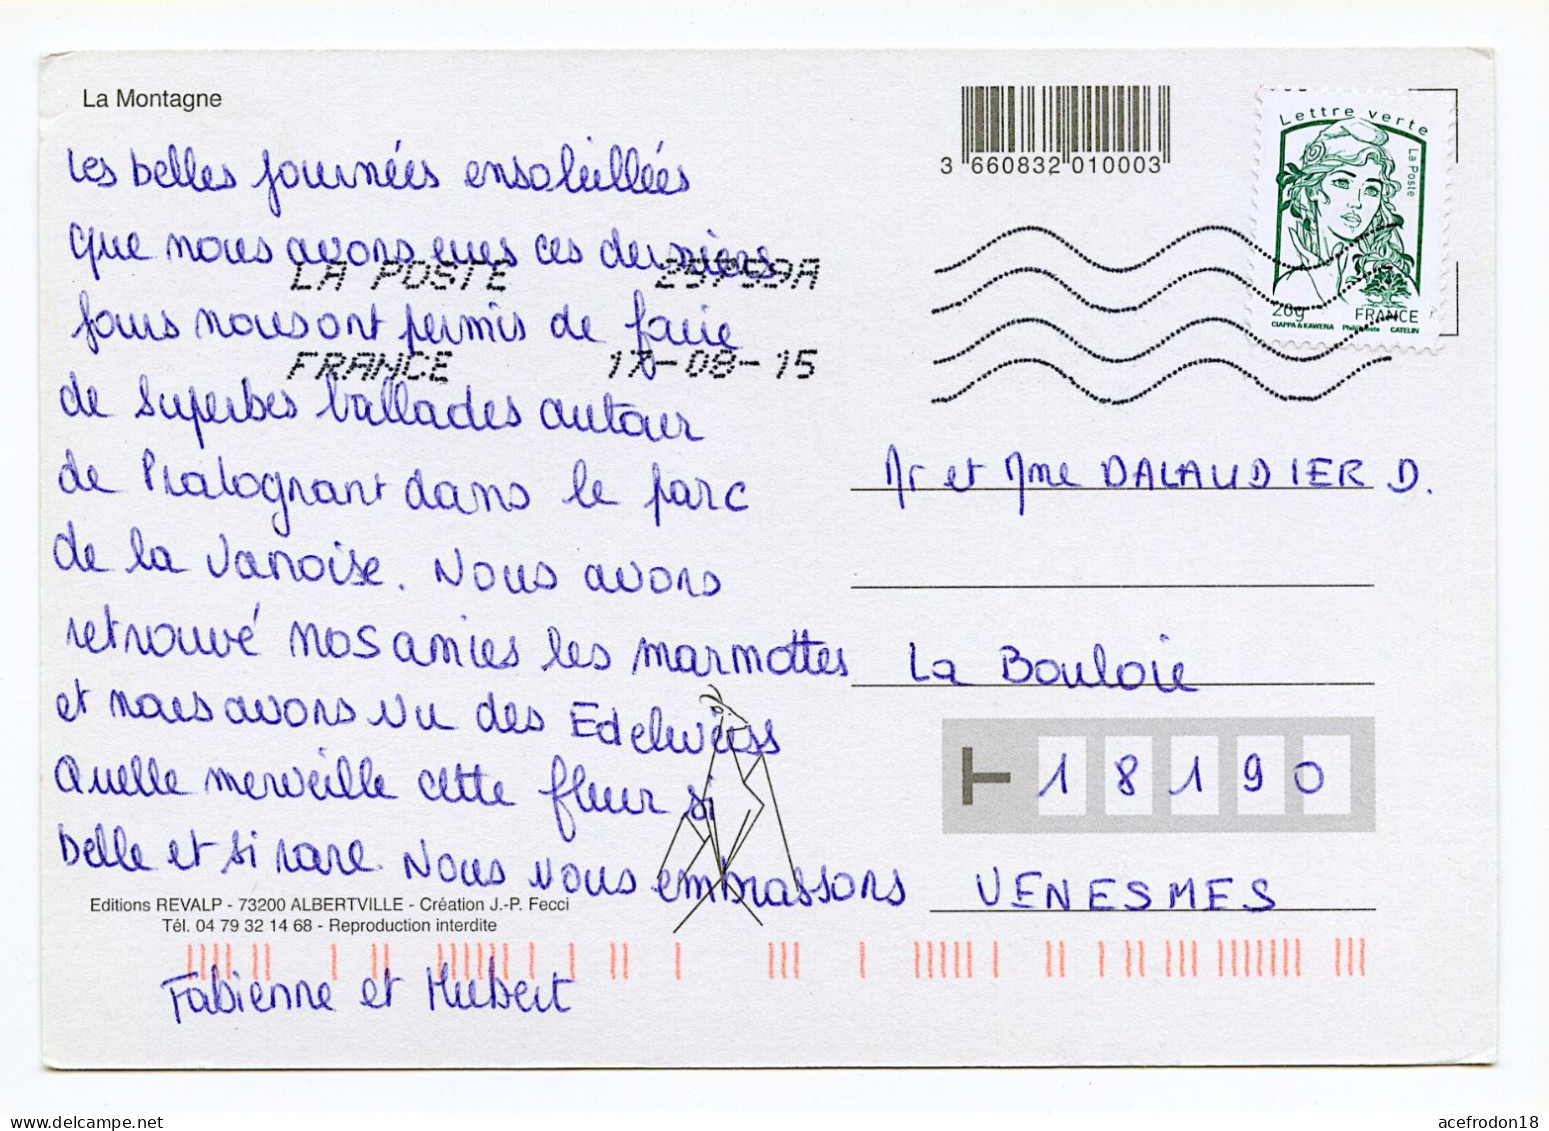 La Montagne
Les belles journées ensoleillées
que nous avons eues ces derniers
jours nous ont permis de faire
de superbes ballades autour
de Pralognant dans le parc
de la Vanoise. Nous avons
retrouvé nos amies les marmottes
et nous avons vu des Edelweiss
Quelle merveille cette fleur si
belle et si rare. Nous vous embrassons
Fabienne et Hubert
Editions REVALP - 73200 ALBERTVILLE - Création J.-P. Fecci
Tél. 04 79 32 14 68 - Reproduction interdite
LA POSTE
FRANCE 17-08-15
3 660832 010003
Lettre verte
La Poste
20g FRANCE
CIAPPA & KAWENA Phil@poste CATELIN
Mr et Mme DALAUDIER D.
La Bouloie
18190
VENESMES
acefrodon18